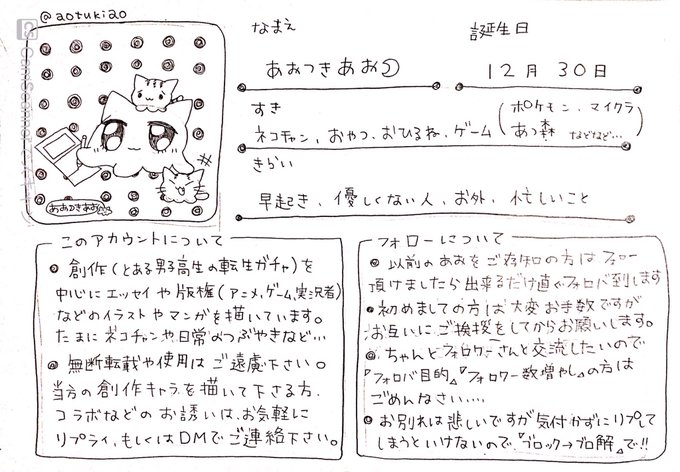 @aotuki20
CamScanner
なまえ
誕生日
あおつきあお
12月 30日
すき
ネコチャン、おやつ、おひるね、ゲーム
(ポケモン、マイクラ
あつ森 などなど…)
きらい
早起き、優しくない人、お外、忙しいこと
あおつきあお
このアカウントについて
創作(とある男子高生の転生ガチャ)を
中心にエッセイや版権(アニメ、ゲーム、実況者)
などのイラストやマンガを描いています。
たまにネコチャンや日常のつぶやきなど…
無断転載や使用はご遠慮下さい。
当方の創作キャラを描いて下さる方、
コラボなどのお誘いは、お気軽に
リプライ、もしくはDMでご連絡下さい。
フォローについて
以前のあおをご存知の方はフォロー
頂けましたら出来るだけ直ぐフォロバ到します
初めましての方は大変お手数ですが
お互いにご挨拶をしてからお願いします。
ちゃんとフォロワーさんと交流したいので
『フォロバ目的』『フォロワー数増やし』の方は
ごめんなさい….
お別れは悲しいですが気付かずにリプして
しまうといけないので『ブロック→ブロ解』で!!